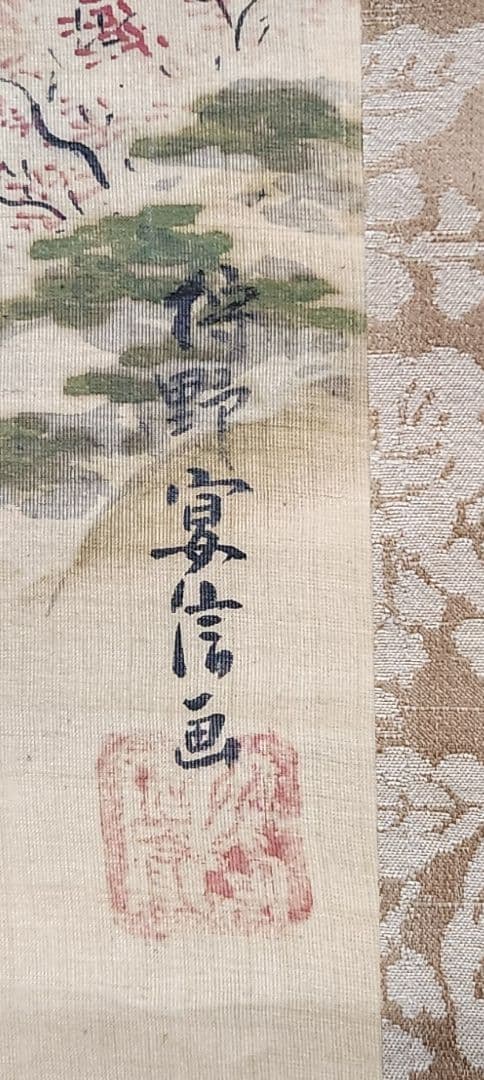 狩野宴信画